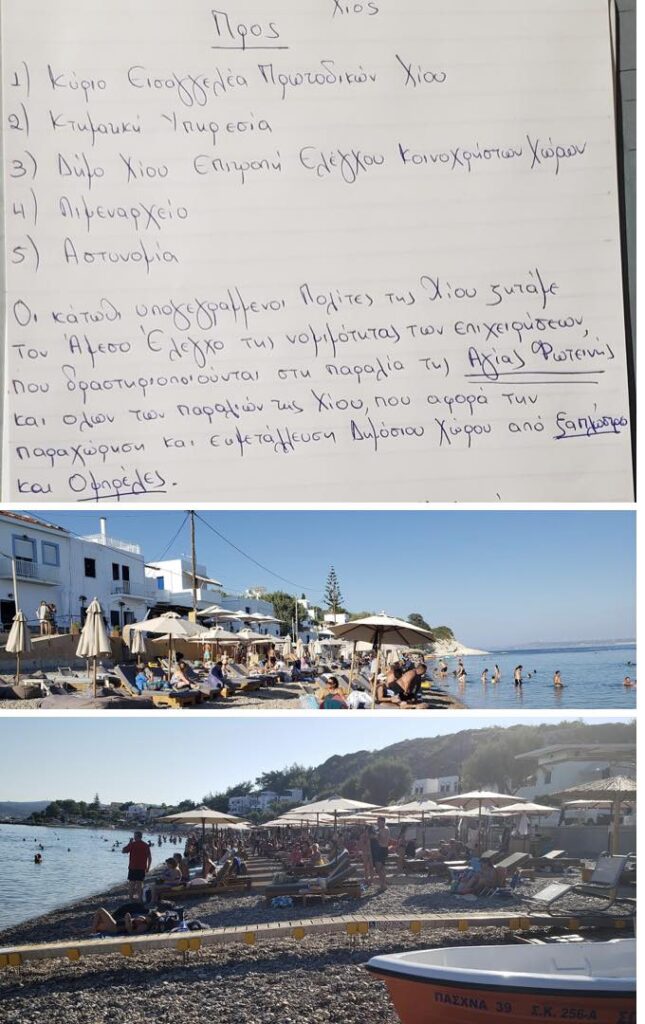 Χίος
Προς
1) Κύριο Εισαγγελέα Πρωτοδικών Χίου
2) Κτηματική Υπηρεσία
3) Δήμο Χίου Επιτροπή Ελέγχου Κοινοχρήστων Χώρων
4) Λιμεναρχείο
5) Αστυνομία
Οι κάτωθι υπογεγραμμενοι Πολίτες της Χίου ζητάμε
τον Άμεσο Έλεγχο της νομιμότητας των επιχειρήσεων,
που δραστηριοποιούνται στη παραλία της Αγίας Φωτεινής
και ολων των παραλιών της Χίου, που αφορά την
παραχώρηση και εκμετάλλευση Δημόσιου Χώρου από ξαπλώστρ
και Ομπρέλες.
ΠΑΣΧΝΑ 39 Σ.Κ. 256-Α